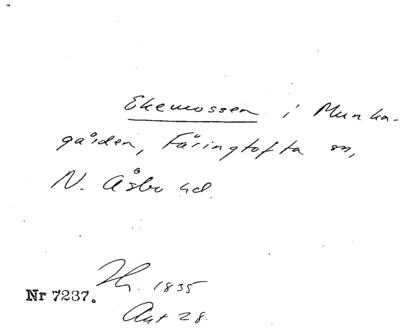 Ekemossen i Munka-
gården, Färingtofta sn,
N. Åsbo hd.
Hz. 1835
Nr 7237.
Akt 28.